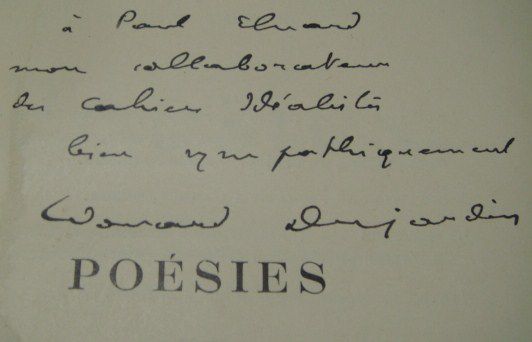 à Paul Eluard
mon collaborateur
des Cahiers Idéalistes
bien sympathiquement
Edouard Dujardin
POÉSIES